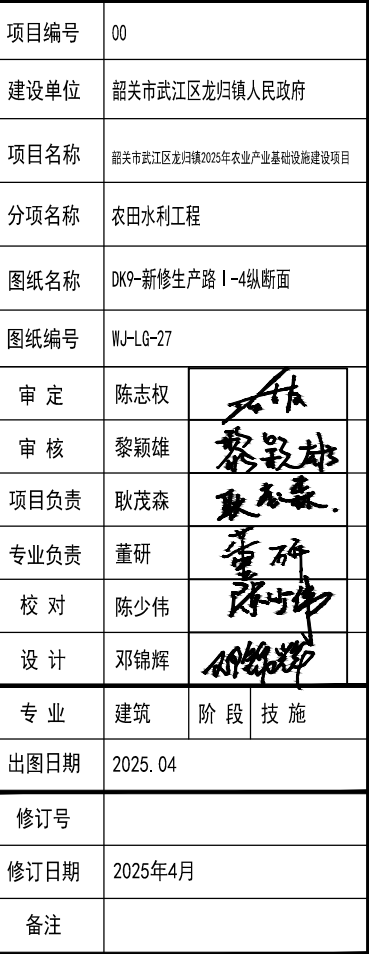 项目编号 00
建设单位 韶关市武江区龙归镇人民政府
项目名称 韶关市武江区龙归镇2025年农业产业基础设施建设项目
分项名称 农田水利工程
图纸名称 DK9-新修生产路Ⅰ-4纵断面
图纸编号 WJ-LG-27
审 定 陈志权
审 核 黎颖雄 黎颖雄
项目负责 耿茂森 耿茂森
专业负责 董研 董研
校 对 陈少伟 陈少伟
设 计 邓锦辉 邓锦辉
专 业 建筑 阶 段 技 施
出图日期 2025.04
修订号
修订日期 2025年4月
备注